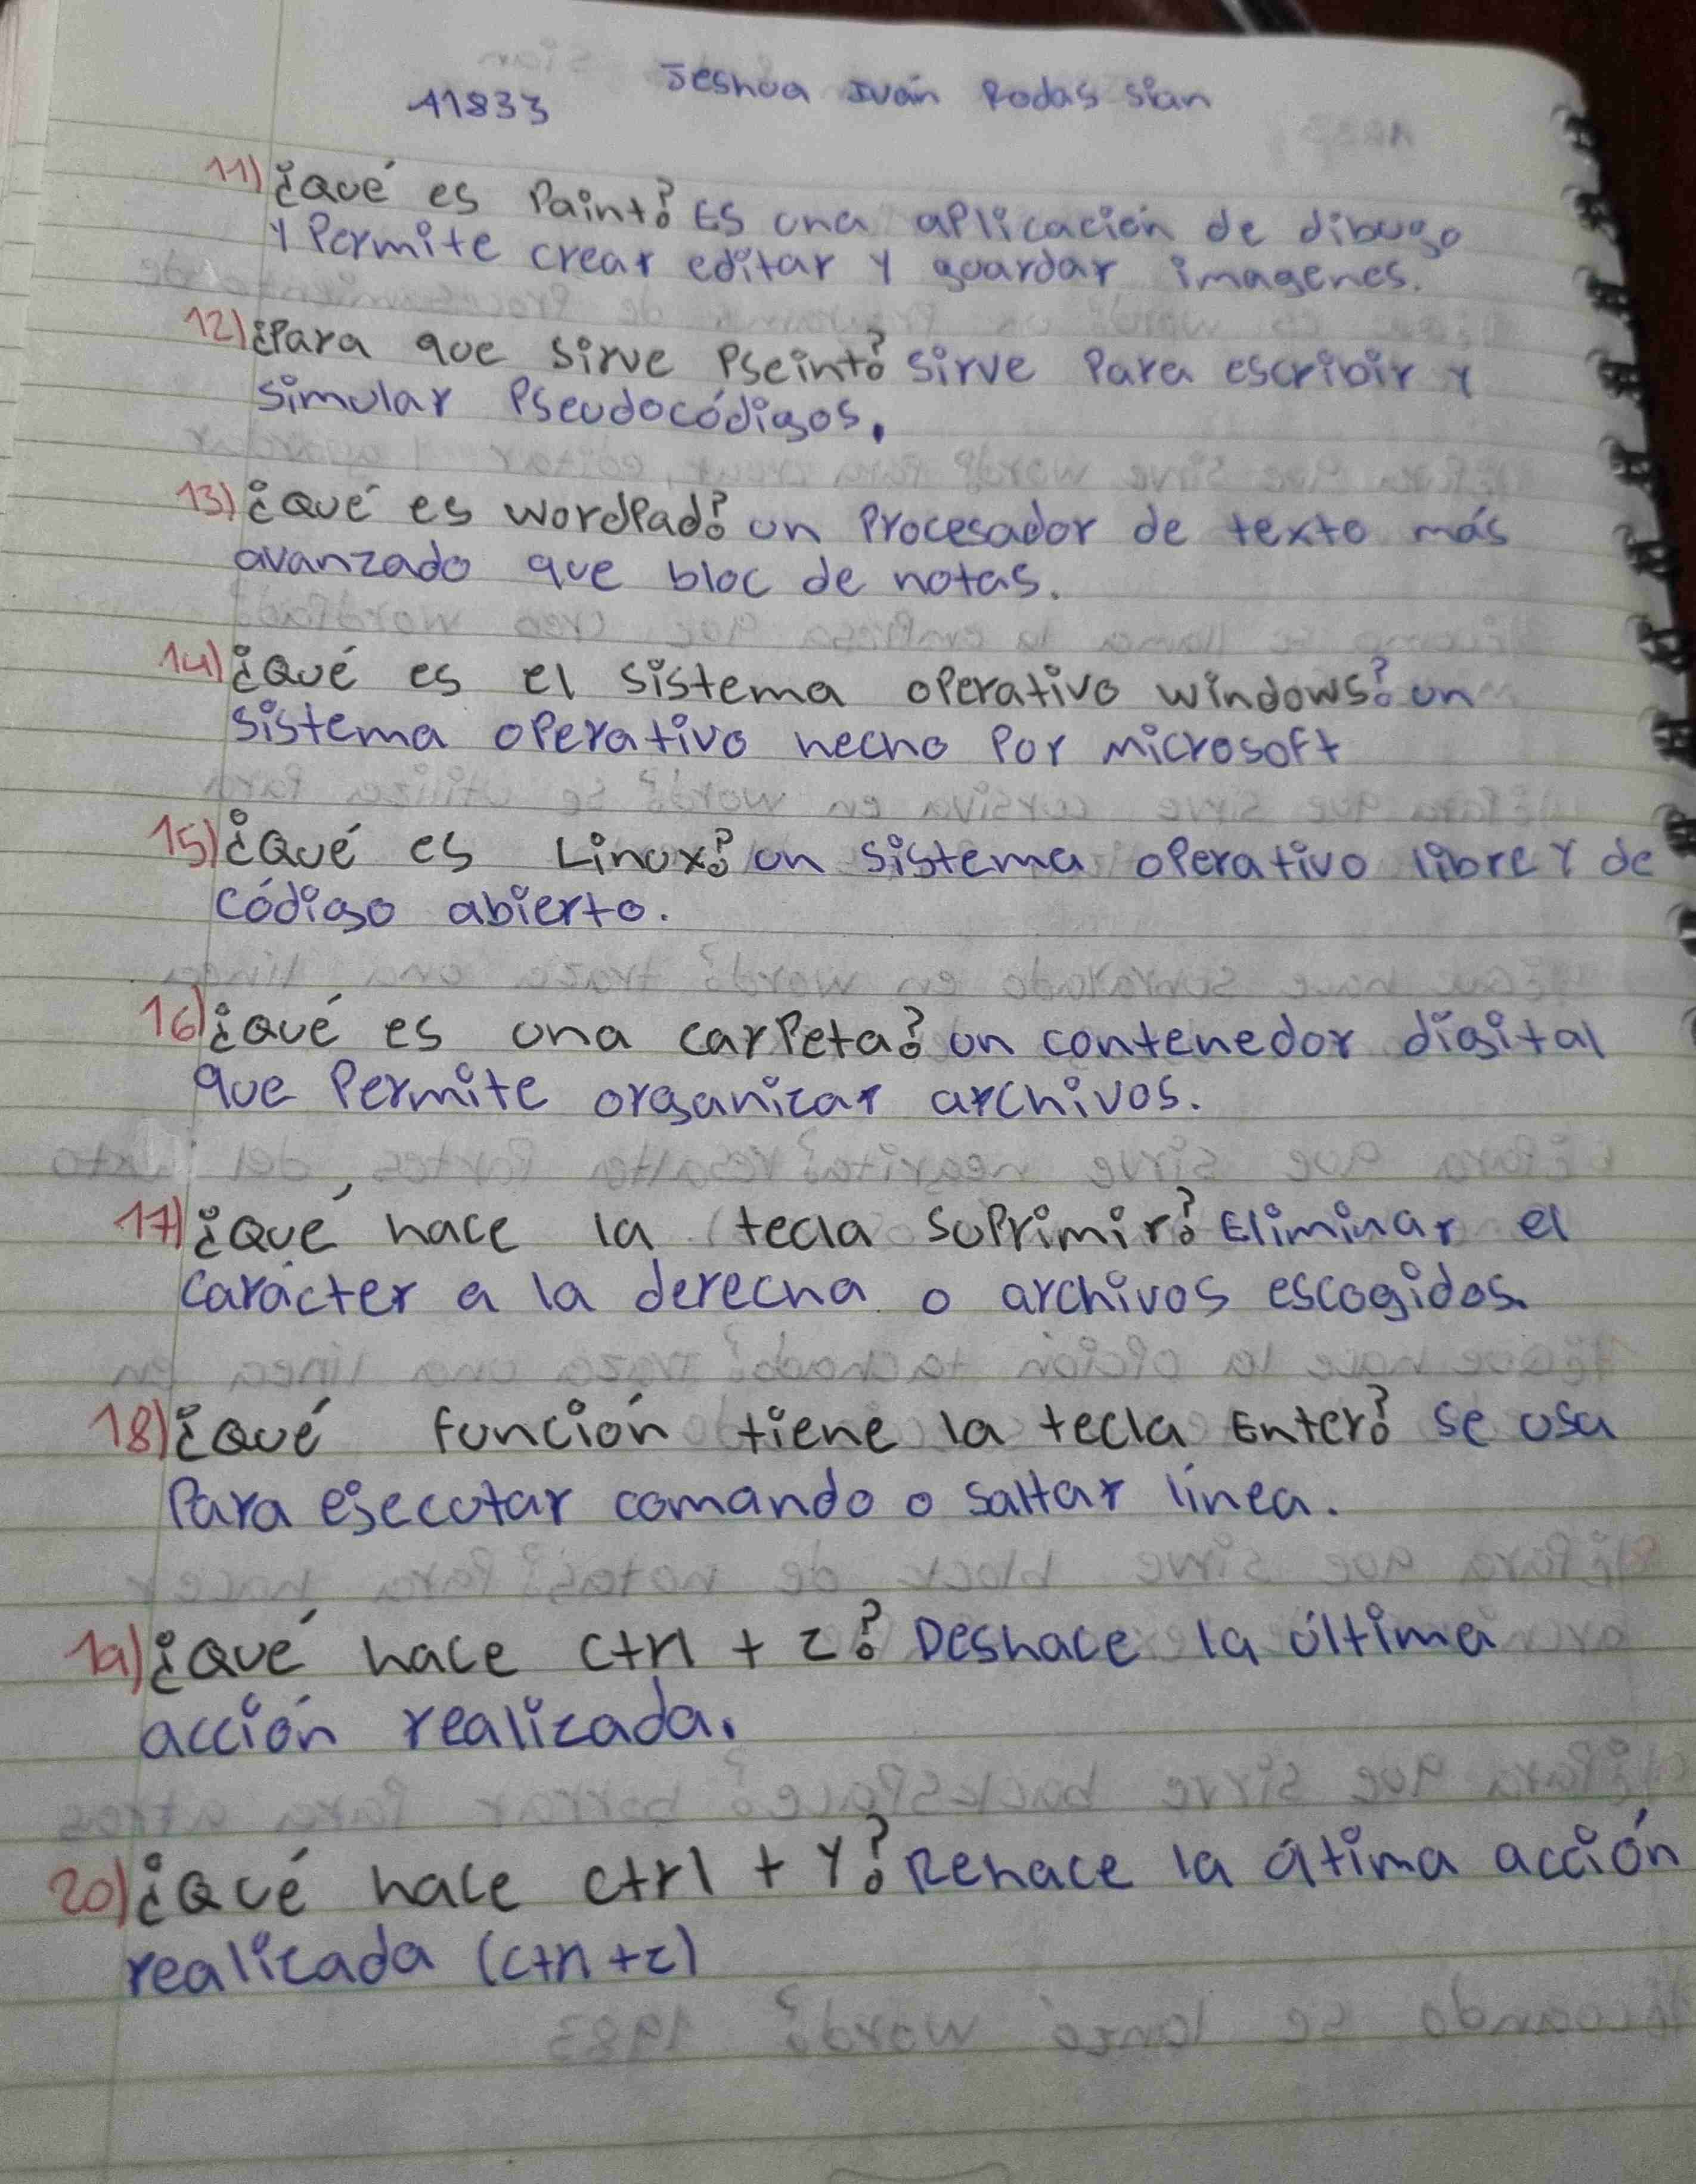 Jeshua Iván Rodas Sian
11833
11) ¿Qué es Paint? Es una aplicación de dibugo
y Permite crear editar y guardar imagenes.
12) ¿Para que sirve Pseint? sirve Para escribir y
simular Pseudocódigos.
13) ¿Qué es wordPad? un Procesador de texto más
avanzado que bloc de notas.
14) ¿Qué es el sistema operativo windows? un
sistema operativo hecho Por microsoft
15) ¿Qué es Linux? un sistema operativo libre y de
código abierto.
16) ¿Qué es una carpeta? un contenedor digital
que Permite organizar archivos.
17) ¿Qué hace la tecla suprimir? Eliminar el
carácter a la derecha o archivos escogidos.
18) ¿Qué función tiene la tecla Enter? se usa
Para ejecutar comando o saltar línea.
19) ¿Qué hace ctrl + z? Deshace la última
acción realizada.
20) ¿Qué hace ctrl + y? Rehace la útima acción
realizada (ctrl+z)